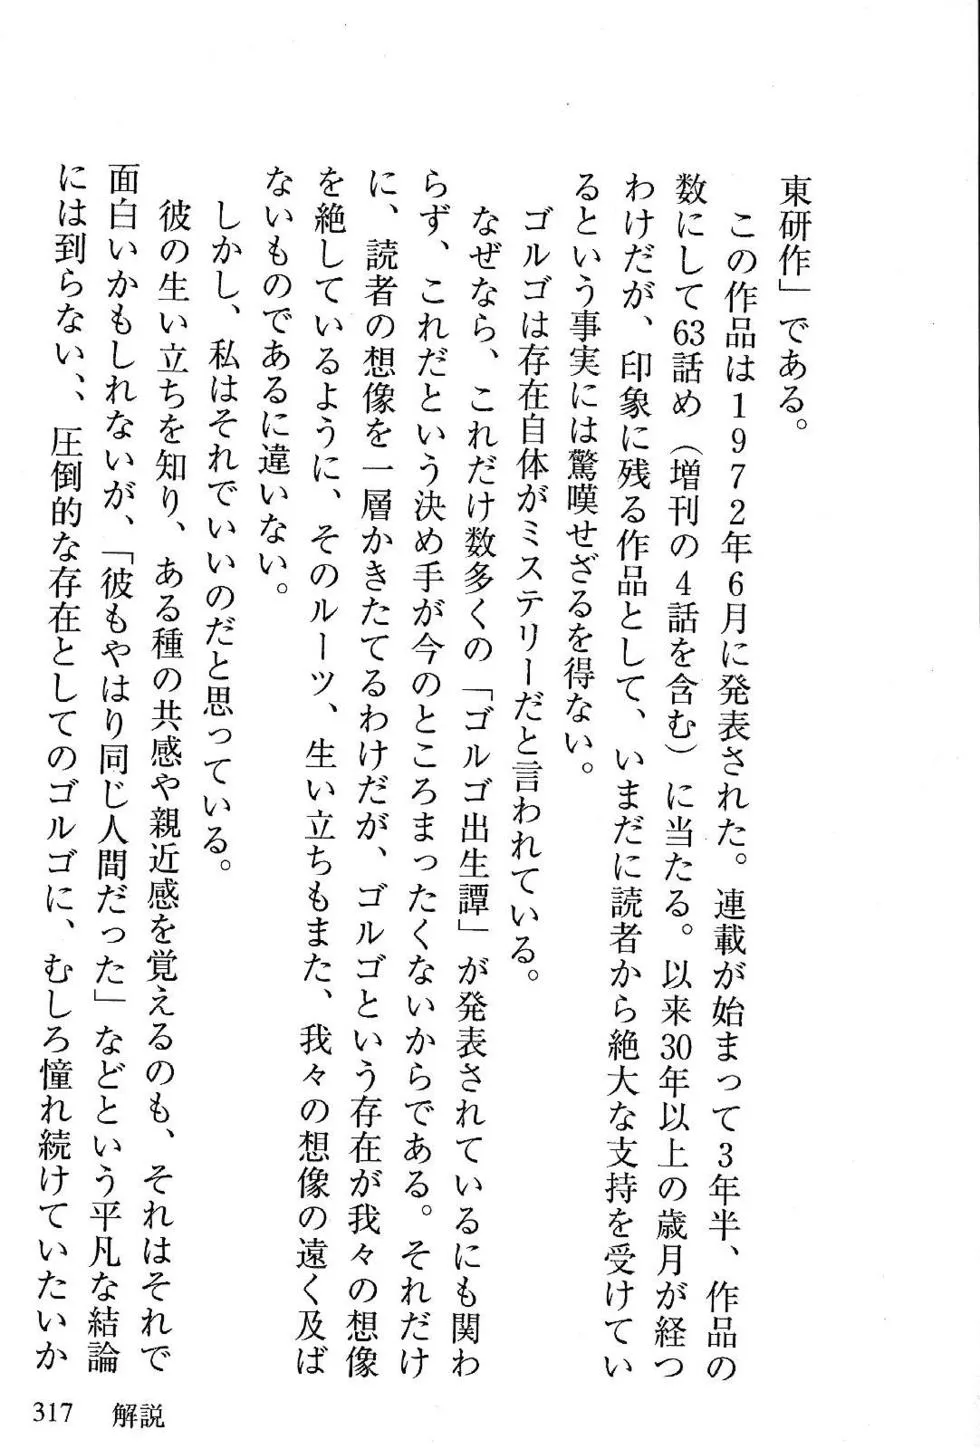 東研作」である。
この作品は1972年6月に発表された。連載が始まって3年半、作品の
数にして63話め（増刊の4話を含む）に当たる。以来30年以上の歳月が経つ
わけだが、印象に残る作品として、いまだに読者から絶大な支持を受けてい
るという事実には驚嘆せざるを得ない。
ゴルゴは存在自体がミステリーだと言われている。
なぜなら、これだけ数多くの「ゴルゴ出生譚」が発表されているにも関わ
らず、これだという決め手が今のところまったくないからである。それだけ
に、読者の想像を一層かきたてるわけだが、ゴルゴという存在が我々の想像
を絶しているように、そのルーツ、生い立ちもまた、我々の想像の遠く及ば
ないものであるに違いない。
しかし、私はそれでいいのだと思っている。
彼の生い立ちを知り、ある種の共感や親近感を覚えるのも、それはそれで
面白いかもしれないが、「彼もやはり同じ人間だった」などという平凡な結論
には到らない、、圧倒的な存在としてのゴルゴに、むしろ憧れ続けていたいか
317 解説